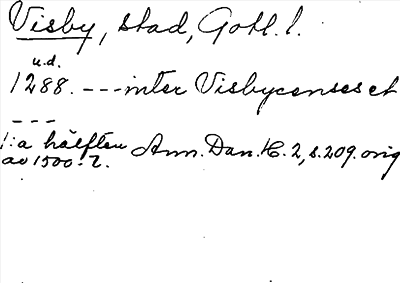 Visby, stad, Gotl. l.
u.d.
1288. --- inter Visbycenses et
---
1:a hälften Ann. Dan. H. 2, s. 209. orig
av 1500-t.